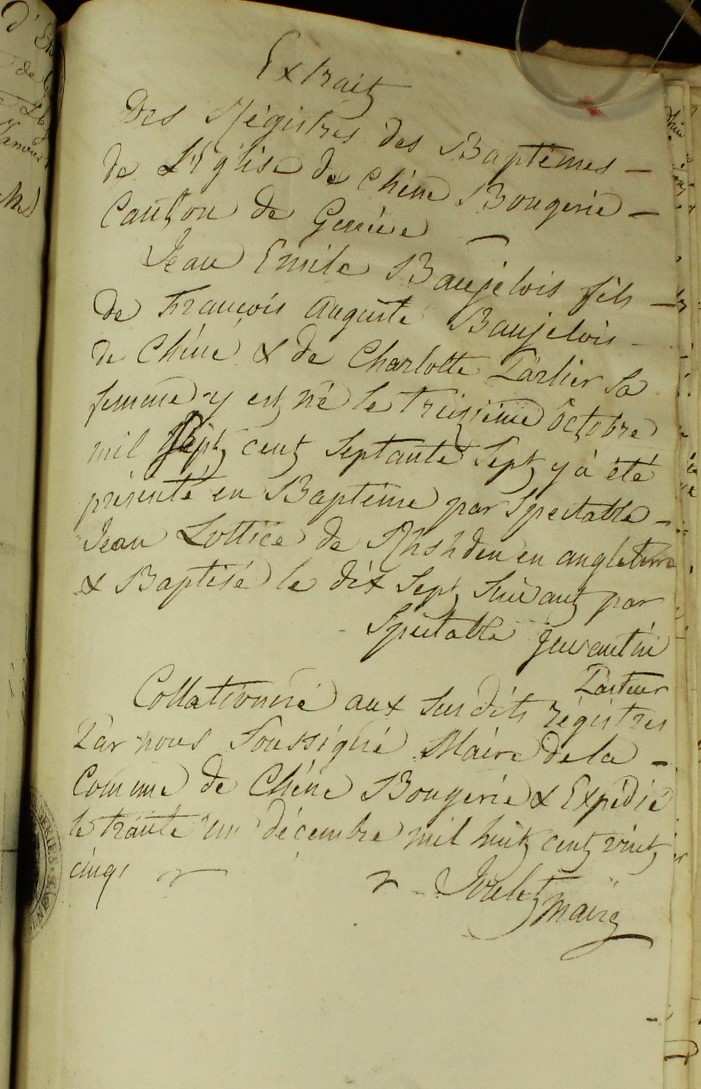 Extrait
Des Régistres des Baptêmes –
de L'Eglise de Chêne Bougerie –
Canton de Genève
Jean Emile Baujelois fils –
de François Auguste Baujelois –
de Chêne & de Charlotte
femme y est né le treizieme Octobre
mil Sept cent Septante Sept y à été
présenté en Baptême par Spectable –
Jean de en angleterre
& Baptisé le dix Sept Suivant par
Spectable
Pasteur
Collationné aux Susdits régistres
Par nous Soussigné Maire de la –
Comune de Chêne Bougerie & Expédié
le trante un décembre mil huit cent vint
cinq
Maire